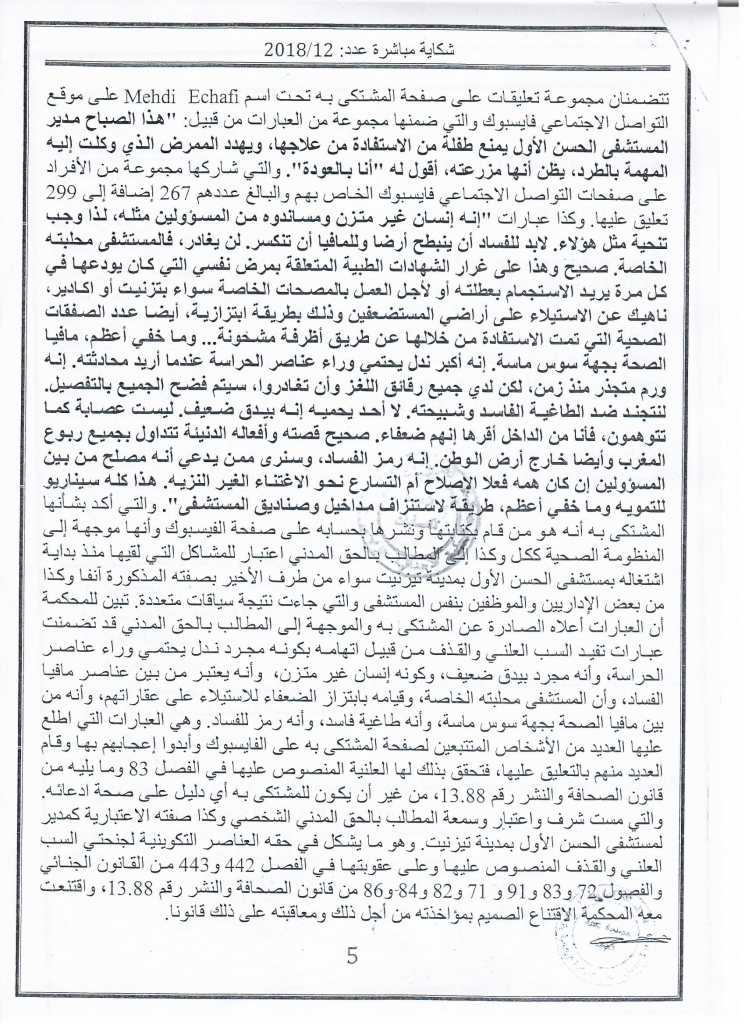 شكاية مباشرة عدد: 2018/12
تتضمنان مجموعة تعليقات على صفحة المشتكى به تحت اسم Mehdi Echafi على موقع
التواصل الاجتماعي فايسبوك والتي ضمنها مجموعة من العبارات من قبيل: "هذا الصباح مدير
المستشفى الحسن الأول يمنع طفلة من الاستفادة من علاجها، ويهدد الممرض الذي وكلت إليه
المهمة بالطرد، يظن أنها مزرعته، أقول له "أنا بالعودة". والتي شاركها مجموعة من الأفراد
على صفحات التواصل الاجتماعي فايسبوك الخاص بهم والبالغ عددهم 267 إضافة إلى 299
تعليق عليها. وكذا عبارات "إنه إنسان غير متزن ومساندوه من المسؤولين مثله، لذا وجب
تنحية مثل هؤلاء. لابد للفساد أن ينبطح أرضا وللمافيا أن تنكسر. لن يغادر، فالمستشفى محلبته
الخاصة. صحيح وهذا على غرار الشهادات الطبية المتعلقة بمرض نفسي التي كان يودعها في
كل مرة يريد الاستجمام بعطلته أو لأجل العمل بالمصحات الخاصة سواء بتزنيت أو اكادير،
ناهيك عن الاستيلاء على أراضي المستضعفين وذلك بطريقة ابتزازية، أيضا عدد الصفقات
الصحية التي تمت الاستفادة من خلالها عن طريق أظرفة مشحونة... وما خفي أعظم، مافيا
الصحة بجهة سوس ماسة. إنه أكبر ندل يحتمي وراء عناصر الحراسة عندما أريد محادثته. إنه
ورم متجذر منذ زمن، لكن لدي جميع رقائق اللغز وأن تغادروا، سيتم فضح الجميع بالتفصيل.
لنتجند ضد الطاغية الفاسد وشبيحته. لا أحد يحميه إنه بيدق ضعيف. ليست عصابة كما
تتوهمون، فأنا من الداخل أقرها إنهم ضعفاء. صحيح قصته وأفعاله الدنيئة تتداول بجميع ربوع
المغرب وأيضا خارج أرض الوطن. إنه رمز الفساد، وسنرى ممن يدعي أنه مصلح من بين
المسؤولين إن كان همه فعلا الإصلاح أم التسارع نحو الاغتناء الغير النزيه. هذا كله سيناريو
للتمويه وما خفي أعظم، طريقة لاستنزاف مداخيل وصناديق المستشفى". والتي أكد بشأنها
المشتكى به أنه هو من قام بكتابتها ونشرها بحسابه على صفحة الفيسبوك وأنها موجهة إلى
المنظومة الصحية ككل وكذا إلى المطالب بالحق المدني اعتبار للمشاكل التي لقيها منذ بداية
اشتغاله بمستشفى الحسن الأول بمدينة تيزنيت سواء من طرف الأخير بصفته المذكورة آنفا وكذا
من بعض الإداريين والموظفين بنفس المستشفى والتي جاءت نتيجة سياقات متعددة. تبين للمحكمة
أن العبارات أعلاه الصادرة عن المشتكى به والموجهة إلى المطالب بالحق المدني قد تضمنت
عبارات تفيد السب العلني والقذف من قبيل اتهامه بكونه مجرد ندل يحتمي وراء عناصر
الحراسة، وأنه مجرد بيدق ضعيف، وكونه إنسان غير متزن، وأنه يعتبر من بين عناصر مافيا
الفساد، وأن المستشفى محلبته الخاصة، وقيامه بابتزاز الضعفاء للاستيلاء على عقاراتهم، وأنه من
بين مافيا الصحة بجهة سوس ماسة، وأنه طاغية فاسد، وأنه رمز للفساد. وهي العبارات التي اطلع
عليها العديد من الأشخاص المتتبعين لصفحة المشتكى به على الفايسبوك وأبدوا إعجابهم بها وقام
العديد منهم بالتعليق عليها، فتحقق بذلك لها العلنية المنصوص عليها في الفصل 83 وما يليه من
قانون الصحافة والنشر رقم 13.88، من غير أن يكون للمشتكى به أي دليل على صحة ادعائه.
والتي مست شرف واعتبار وسمعة المطالب بالحق المدني الشخصي وكذا صفته الاعتبارية كمدير
لمستشفى الحسن الأول بمدينة تيزنيت. وهو ما يشكل في حقه العناصر التكوينية لجنحتي السب
العلني والقذف المنصوص عليها وعلى عقوبتها في الفصل 442 و443 من القانون الجنائي
والفصول 72 و83 و91 و 71 و82 و84-و86 من قانون الصحافة والنشر رقم 13.88، واقتنعت
معه المحكمة الاقتناع الصميم بمؤاخذته من أجل ذلك ومعاقبته على ذلك قانونا.
5